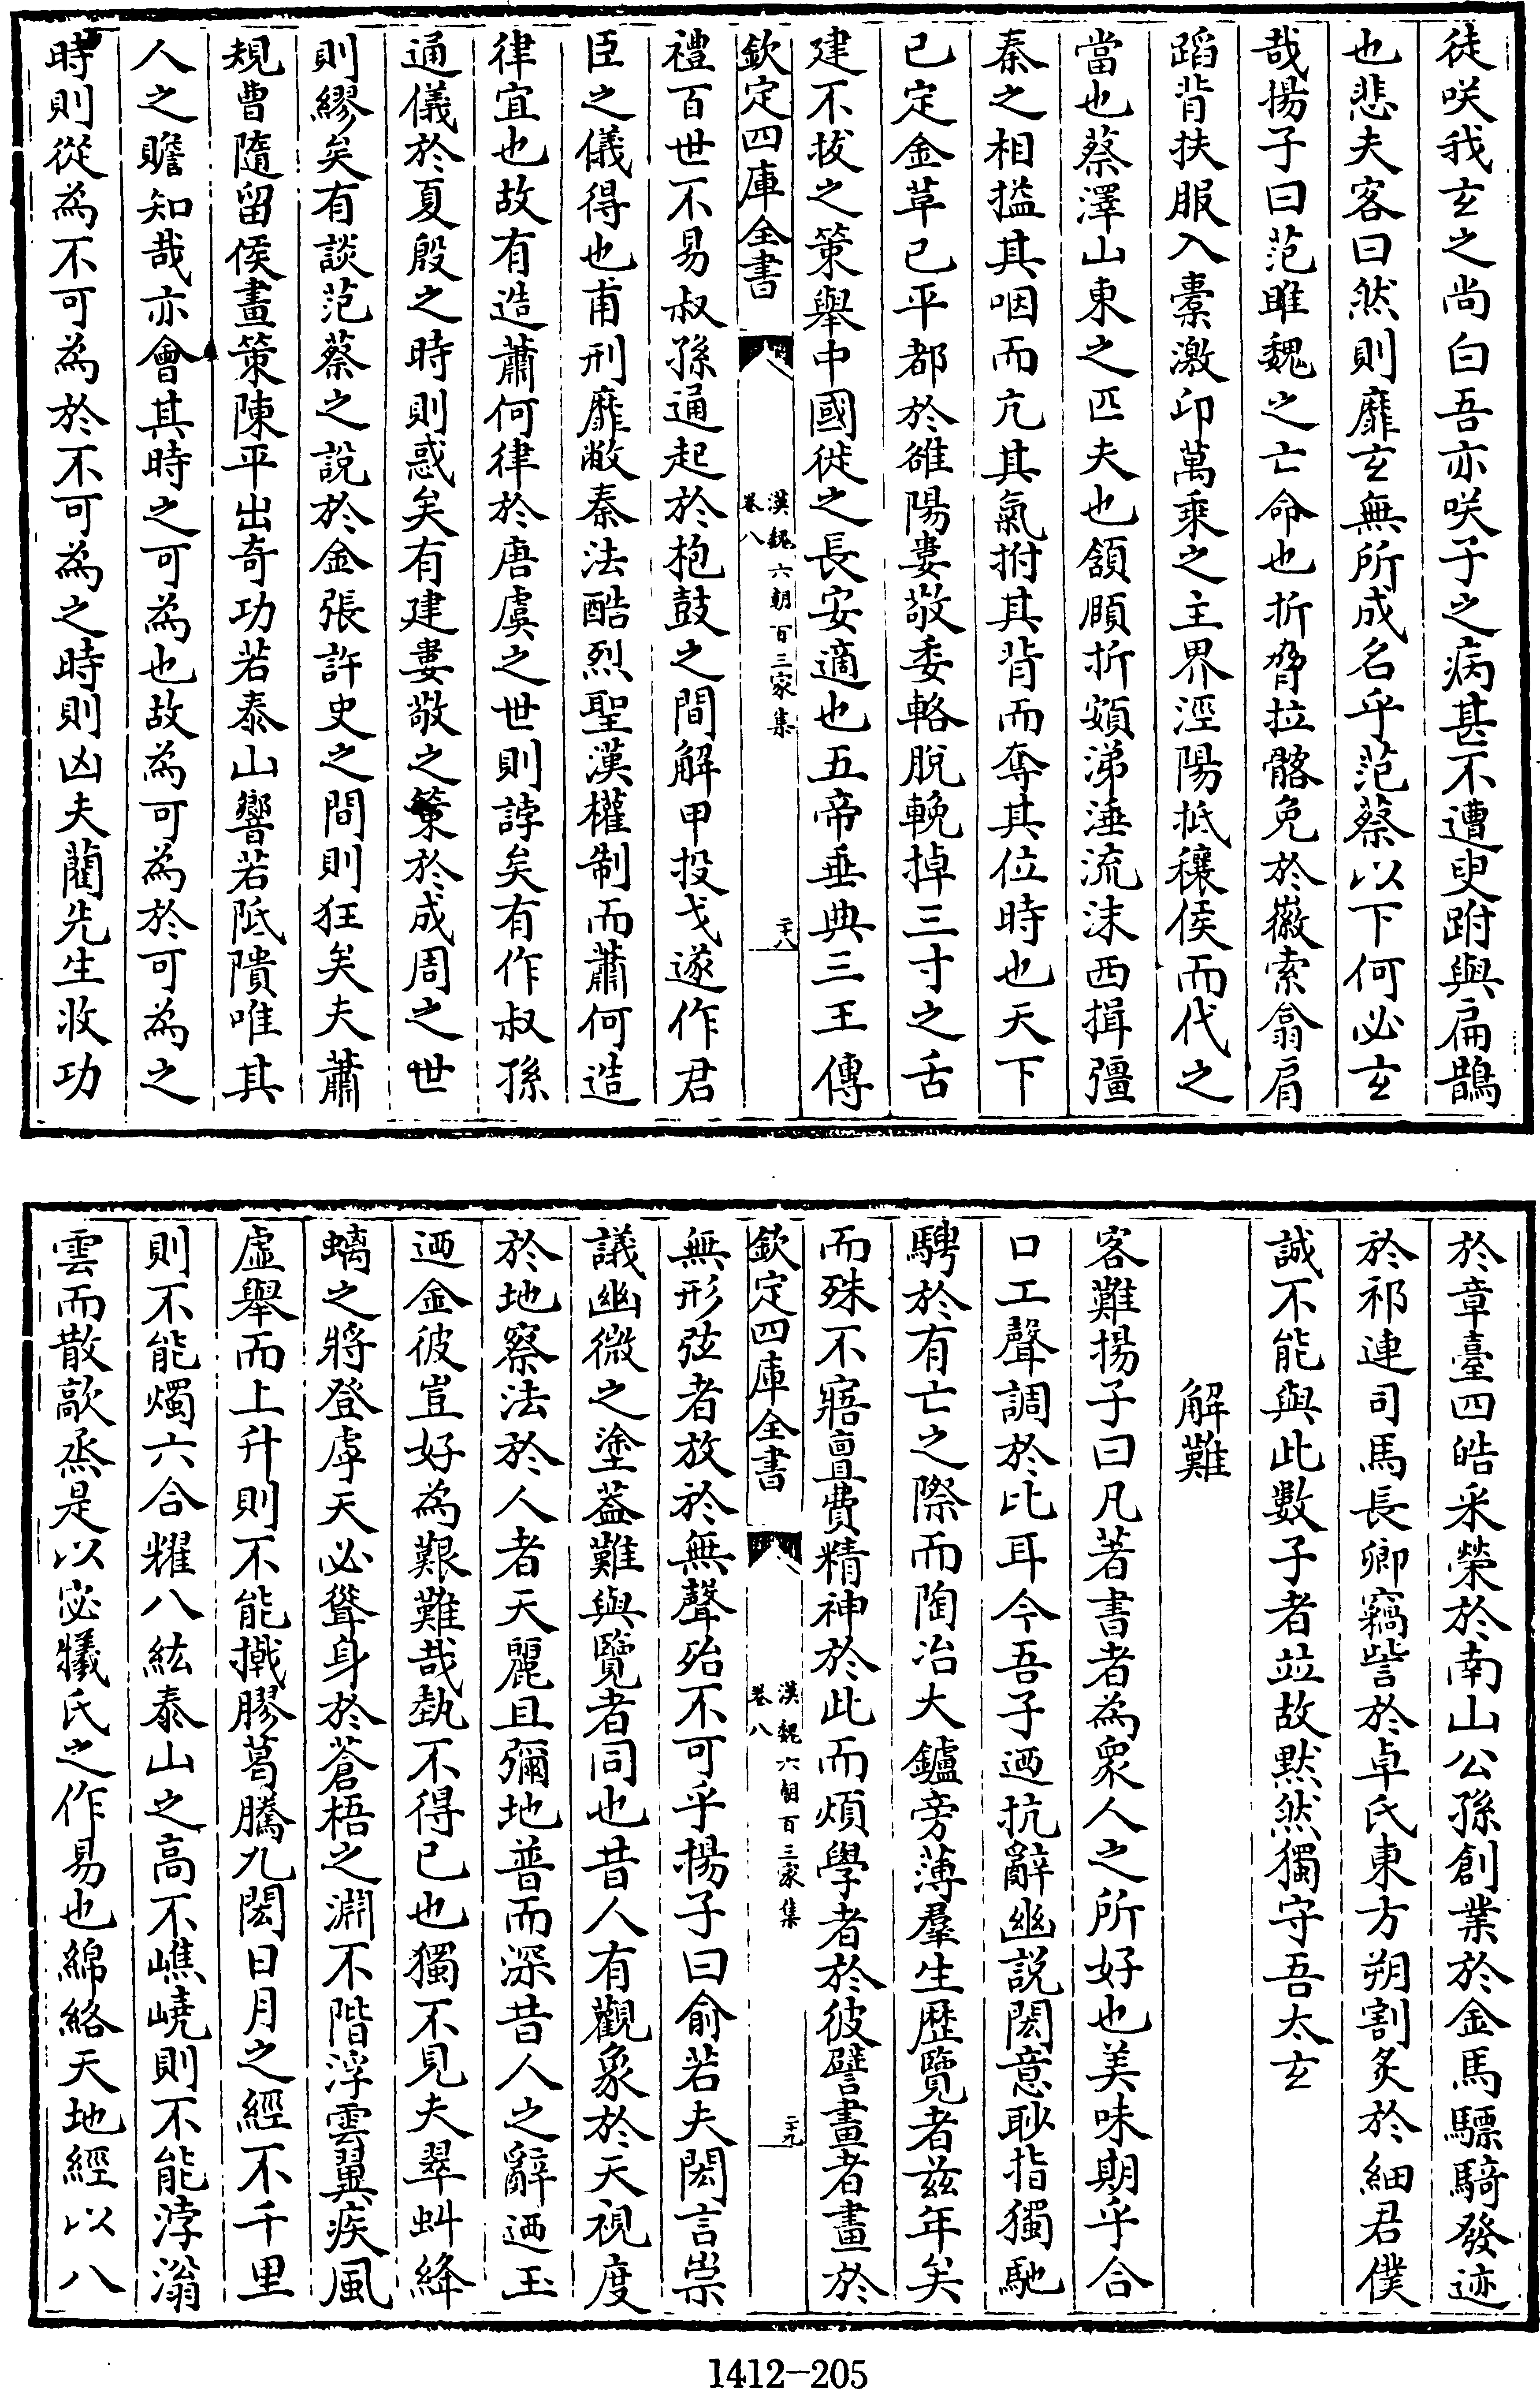 徒咲我玄之尚白吾亦咲子之病甚不遭臾跗與扁鵲
也悲夫客曰然則靡玄無所成名乎范蔡以下何必玄
哉揚子曰范雎魏之亡命也折脅拉髂免於徽索翕肩
蹈背扶服入橐激卬萬乘之主界涇陽抵穰侯而代之
當也蔡澤山東之匹夫也頷頤折頞涕唾流沫西揖彊
秦之相搤其咽而亢其氣拊其背而奪其位時也天下
已定金革已平都於雒陽婁敬委輅脫輓掉三寸之舌
建不拔之策舉中國徙之長安適也五帝垂典三王傳
欽定四庫全書
漢魏六朝百三家集
卷八
二十八
禮百世不易叔孫通起於枹鼓之間解甲投戈遂作君
臣之儀得也甫刑靡敝秦法酷烈聖漢權制而蕭何造
律宜也故有造蕭何律於唐虞之世則誖矣有作叔孫
通儀於夏殷之時則惑矣有建婁敬之策於成周之世
則繆矣有談范蔡之說於金張許史之間則狂矣夫蕭
規曹隨留侯畫策陳平出奇功若泰山響若阺隤唯其
人之贍知哉亦會其時之可為也故為可為於可為之
時則從為不可為於不可為之時則凶夫藺先生收功
於章臺四皓采榮於南山公孫創業於金馬驃騎發迹
於祁連司馬長卿竊訾於卓氏東方朔割炙於細君僕
誠不能與此數子者竝故默然獨守吾太玄
解難
客難揚子曰凡著書者為衆人之所好也美味期乎合
口工聲調於比耳今吾子迺抗辭幽說閎意眇指獨馳
騁於有亡之際而陶冶大鑪旁薄羣生歷覽者茲年矣
而殊不寤亶費精神於此而煩學者於彼譬畫者畫於
欽定四庫全書
漢魏六朝百三家集
卷八
二十九
無形弦者放於無聲殆不可乎揚子曰俞若夫閎言崇
議幽微之塗葢難與覽者同也昔人有觀象於天視度
於地察法於人者天麗且彌地普而深昔人之辭迺玉
迺金彼豈好為艱難哉埶不得已也獨不見夫翠虯絳
螭之將登虖天必聳身於蒼梧之淵不階浮雲翼疾風
虛舉而上升則不能撠膠葛騰九閎日月之經不千里
則不能燭六合耀八紘泰山之高不嶕嶢則不能浡滃
雲而散歊烝是以宓犧氏之作易也綿絡天地經以八
1412-205